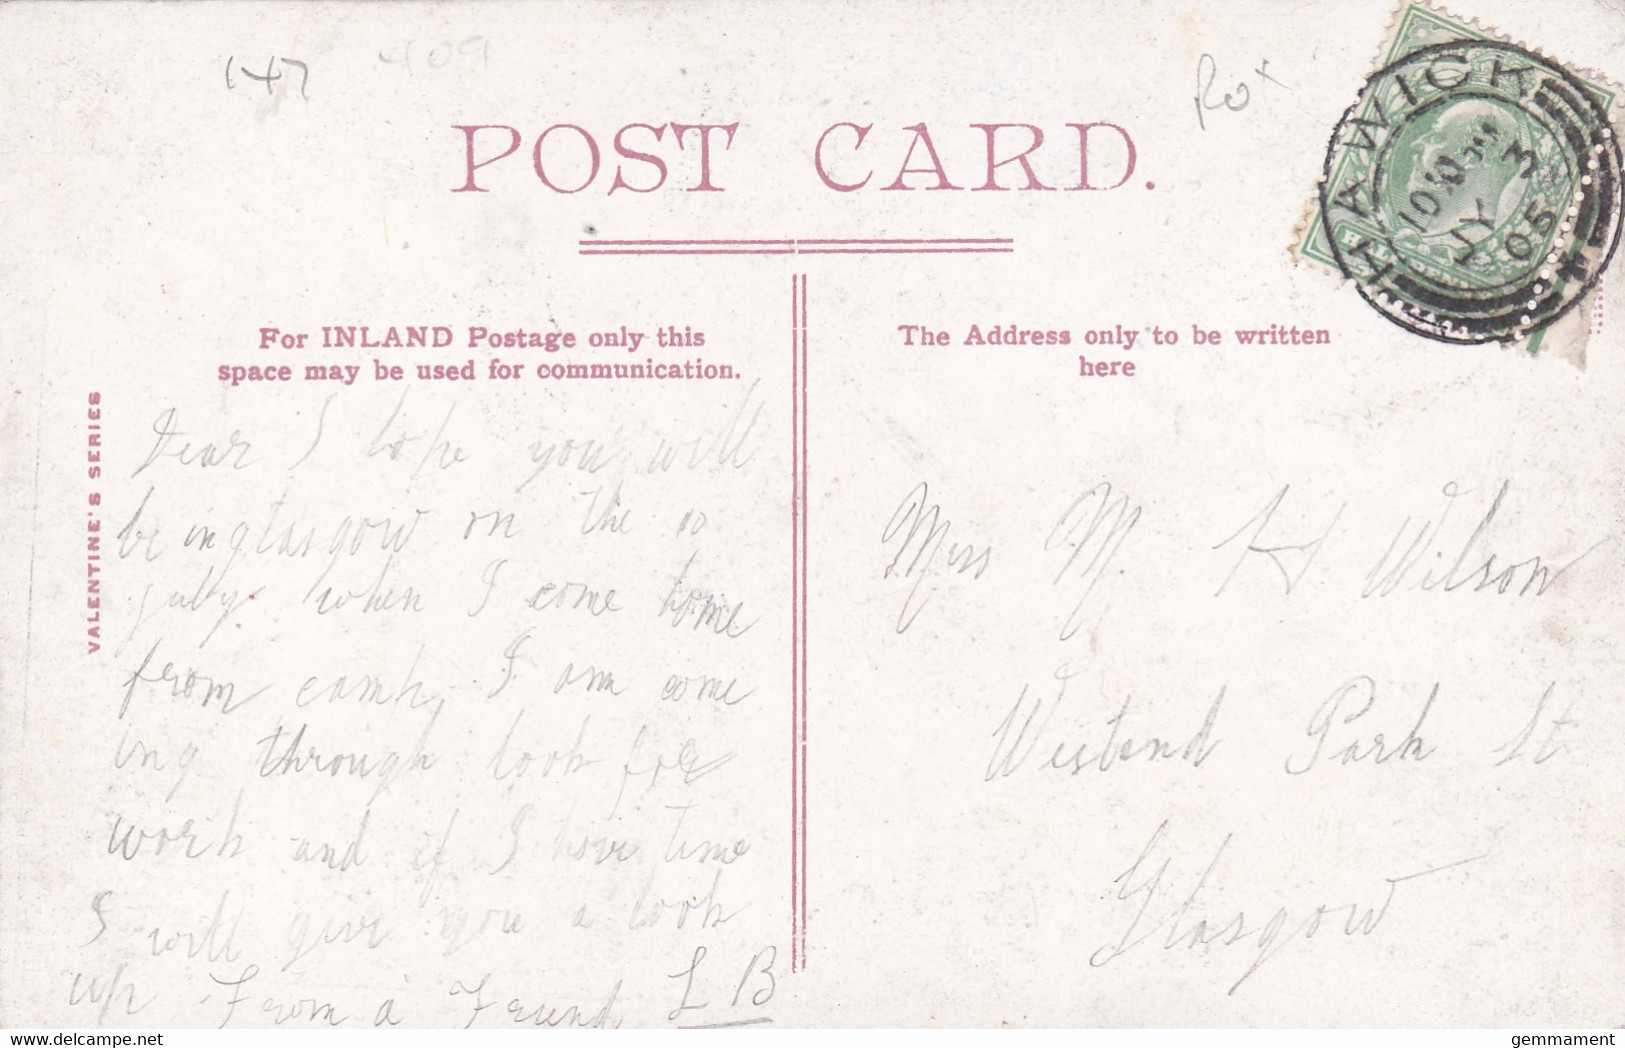 147
409
Rox
POST CARD.
HAWICK
10 30 PM
JY 3
05
For INLAND Postage only this
space may be used for communication.
The Address only to be written
here
VALENTINE'S SERIES
Dear I hope you will
be in glasgow on the 10
july. when I come home
from camp, I am come
ing through look for
work and if I have time
I will give you a look
up From a Friend L B
Miss M. H Wilson
Westend Park St
Glasgow
gemmament